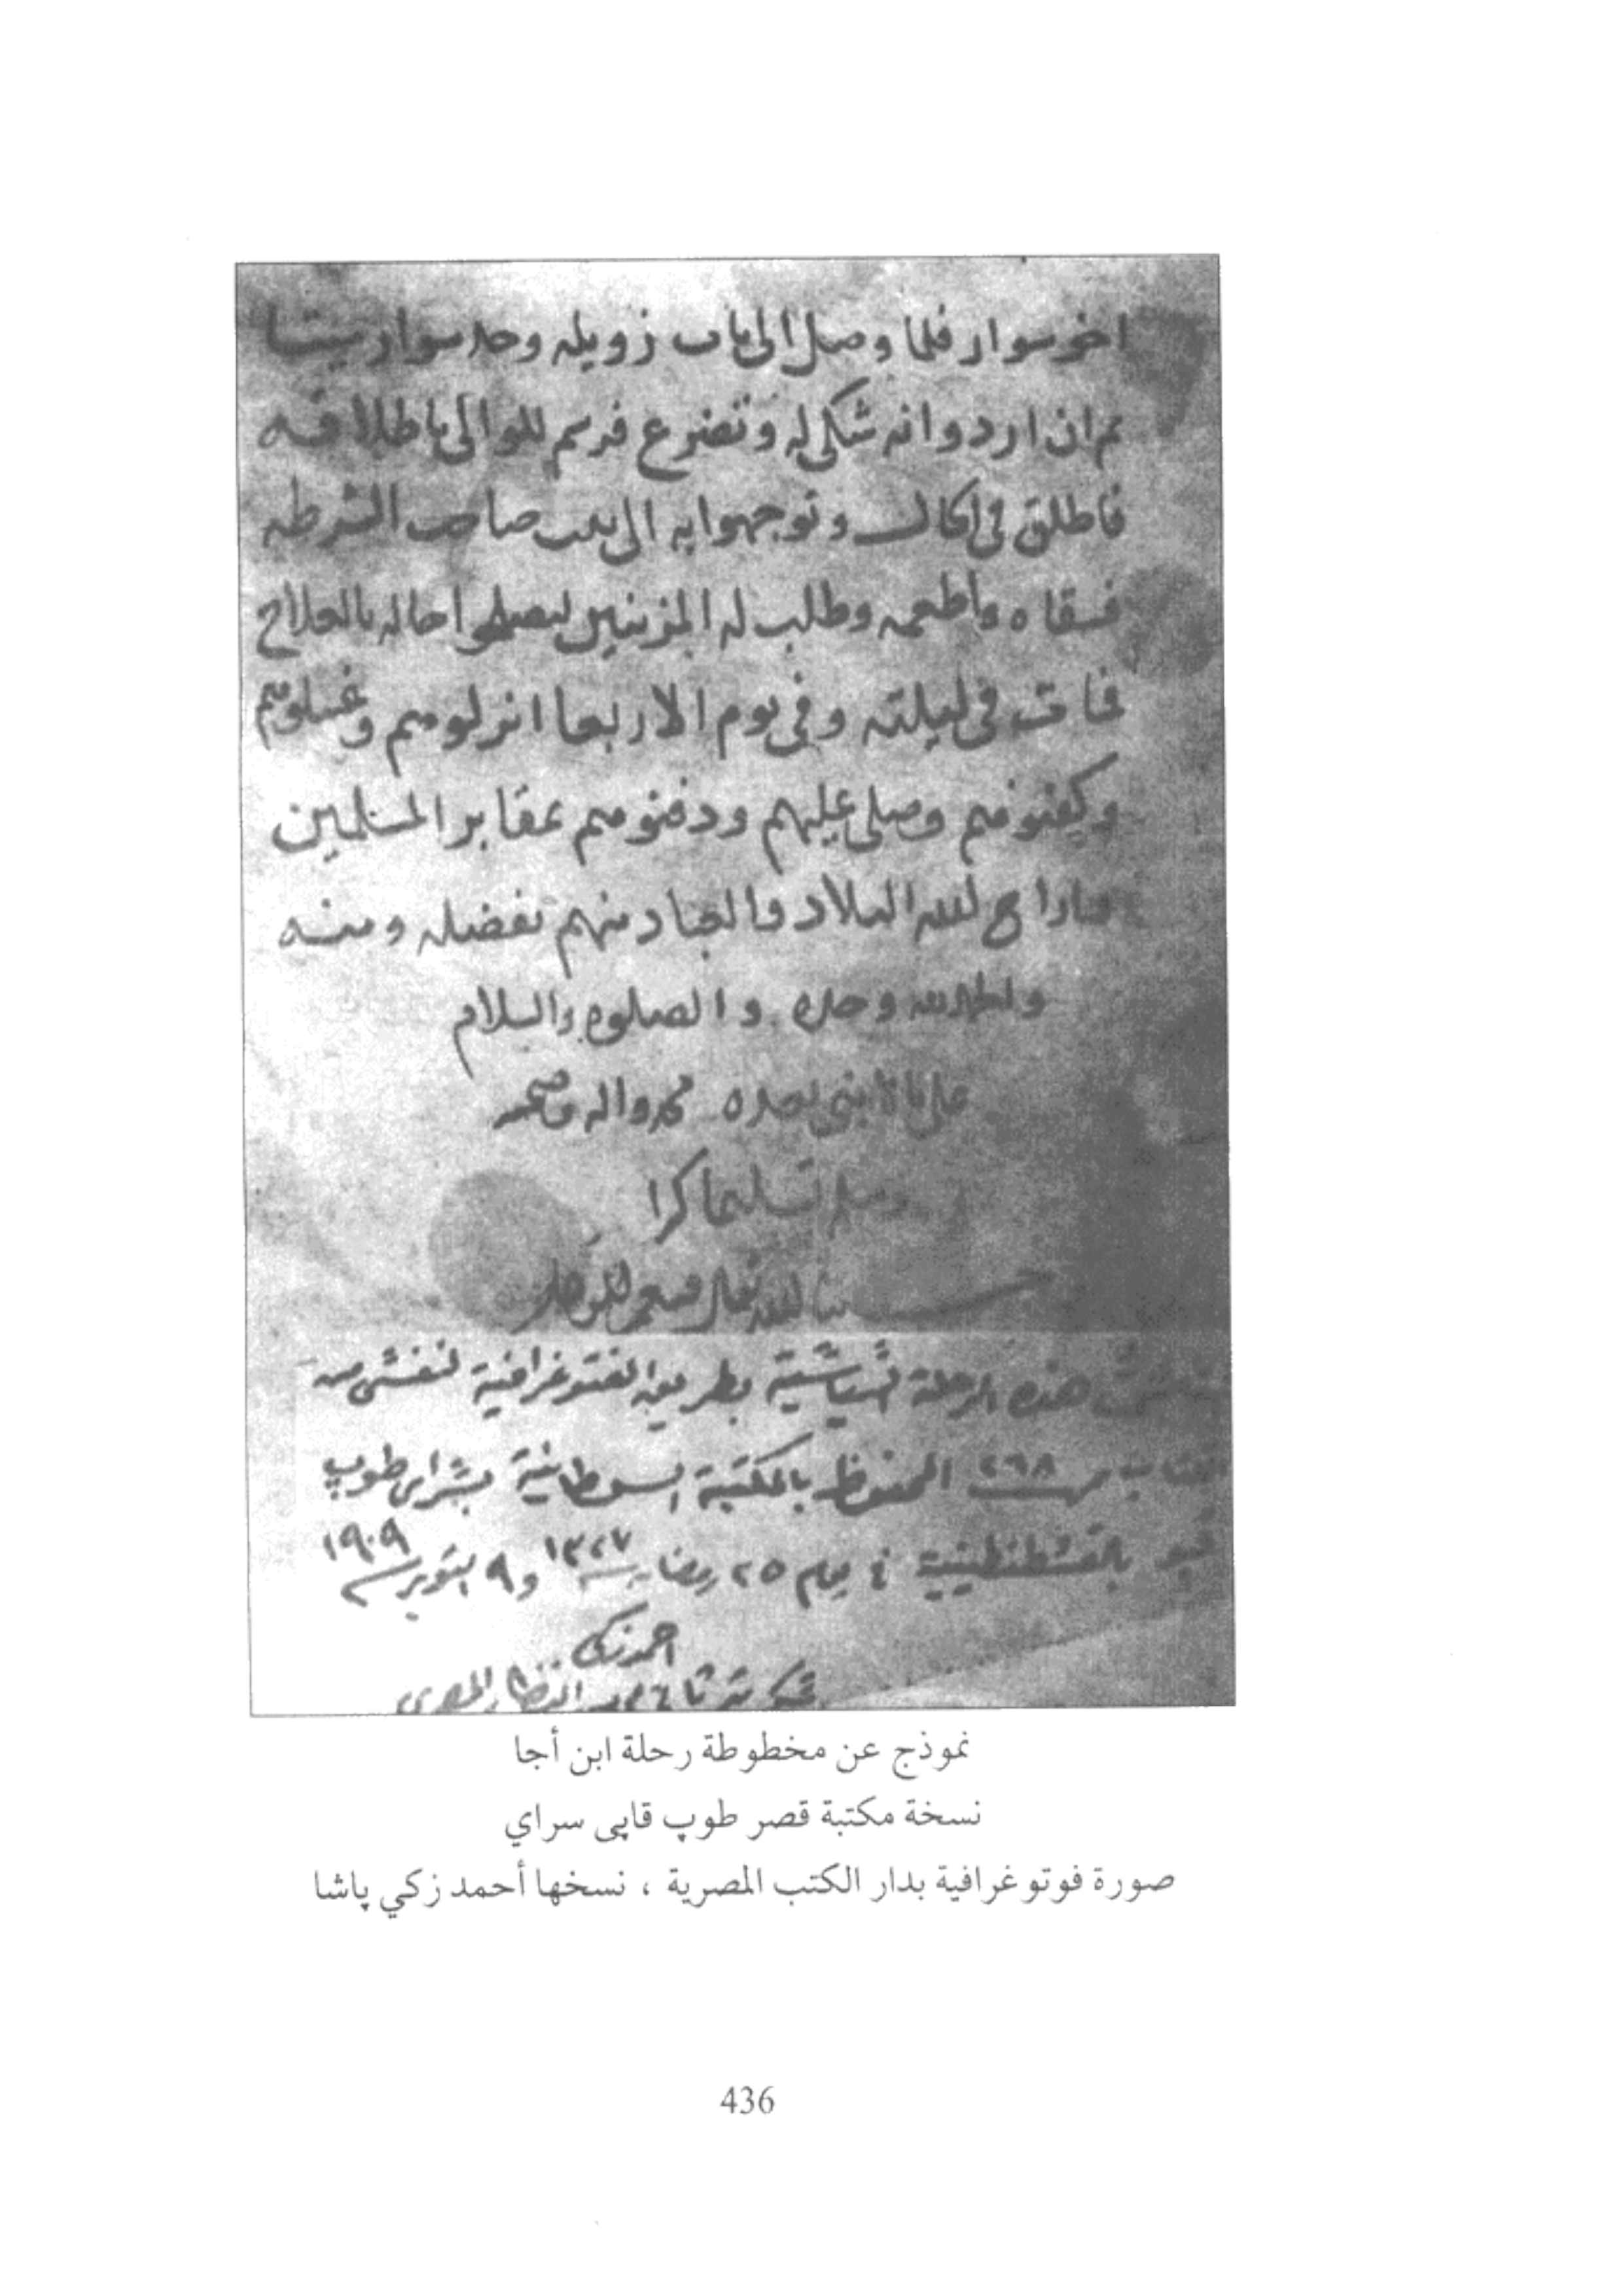 اخو سوار فلما وصل الى باب زويله وجد سوار ميتا
ثم ان اردوانه شكى له وتضرع فرسم للوالى باطلاقه
فاطلق فى الحال وتوجهوا به الى بيت صاحب الشرطه
فسقاه واطعمه وطلب له المزينين ليصلحوا حاله بالعلاج
فمات فى ليلته وفى يوم الاربعا انزلوهم وغسلوهم
وكفنوهم وصلى عليهم ودفنوهم بمقابر المسلمين
واراح الله البلاد والعباد منهم بفضله ومنه
والحمد لله وحده والصلوة والسلام
على من لا نبى بعده محمد واله وصحبه
وسلم تسليما كثيرا
حسبنا الله تعالى ونعم الوكيل
هذه الرحلة بطريق الفتوغرافية لنفسى من
الكتاب نمرة ٢٩٨ المحفوظ بالمكتبة السلطانية بسراى طوپ
قپو بالقسطنطينية فى يوم ٢٥ رمضان سنة ١٣٢٧ و٩ اكتوبر سنة ١٩٠٩
احمد زكى
النظار المصرى
نموذج عن مخطوطة رحلة ابن أجا
نسخة مكتبة قصر طوپ قاپى سراي
صورة فوتوغرافية بدار الكتب المصرية ، نسخها أحمد زكي پاشا
436